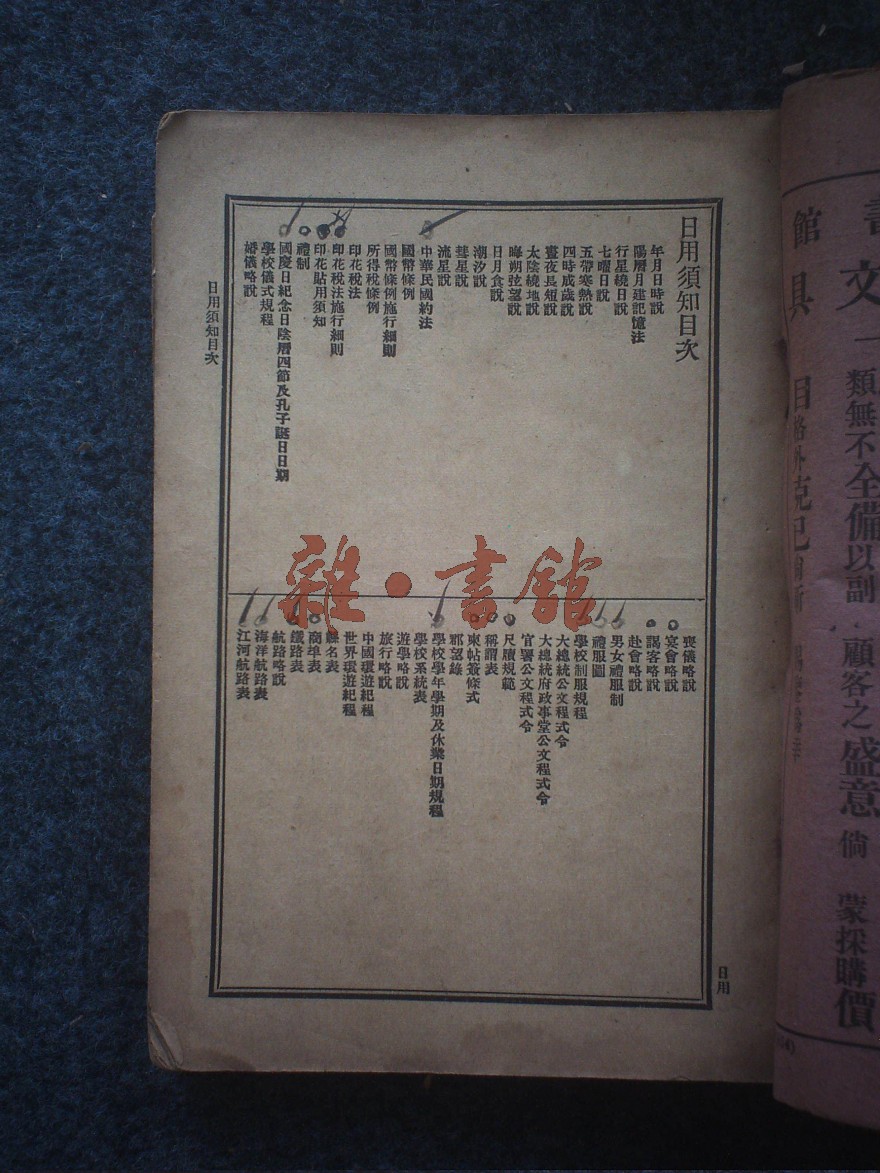 日用須知目次
年月日時說
陽曆月建記憶法
行星繞日說
七曜日說
五帶寒熱說
四時成歲說
晝夜長短說
太陰繞地說
晦朔弦望說
日月食說
潮汐說
彗星說
流星說
中華民國約法
國幣條例
國幣條例施行細則
所得稅條例
印花稅法
印花稅法施行細則
印花貼用須知
禮制
國慶日紀念日陰曆四節及孔子誕日日期
學校儀式規程
婚儀略說
喪儀略說
宴會略說
謁客略說
赴會略說
男女禮服制
禮服圖
學校制服規程
大總統公文程式令
大總統府政事堂公文程式令
官署公文程式令
尺牘規範
稱謂表
柬帖簽條式
郡望錄
學校學年學期及休業日期規程
學校系統表
遊學略說
旅行略說
中國環遊紀程
世界環遊紀程
縣名表
商埠表
鐵路表
航路略說
海洋航路表
江河航路表
日用須知目次
日用
雜·書館
書
文
一
類無不全備以副
顧客之盛意
倘
蒙採購價
館
具
日格外克己